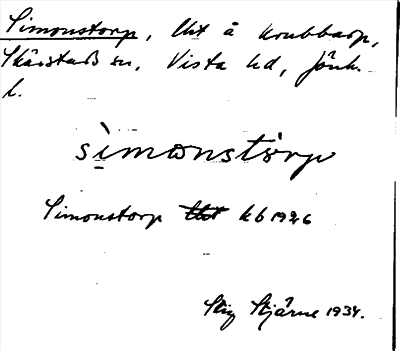 Simonstorp, lht å Krubbarp,
Skärstads sn, Vista hd, Jönk.
l.
sìmǝnstòrp
Simonstorp kb 1926
Stig Stjärne 1934.